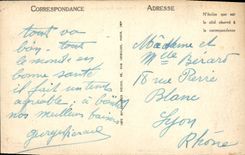 CORRESPONDANCE
ADRESSE
N'écrire que sur
le côté réservé à
la correspondance
tout va
bien. tout
le monde en
bonne santé
il fait un temps
agréable ; à
nos meilleurs baisers
Madame et
Mlle Bérard
18 rue Pierre
Blanc
Lyon
Rhône